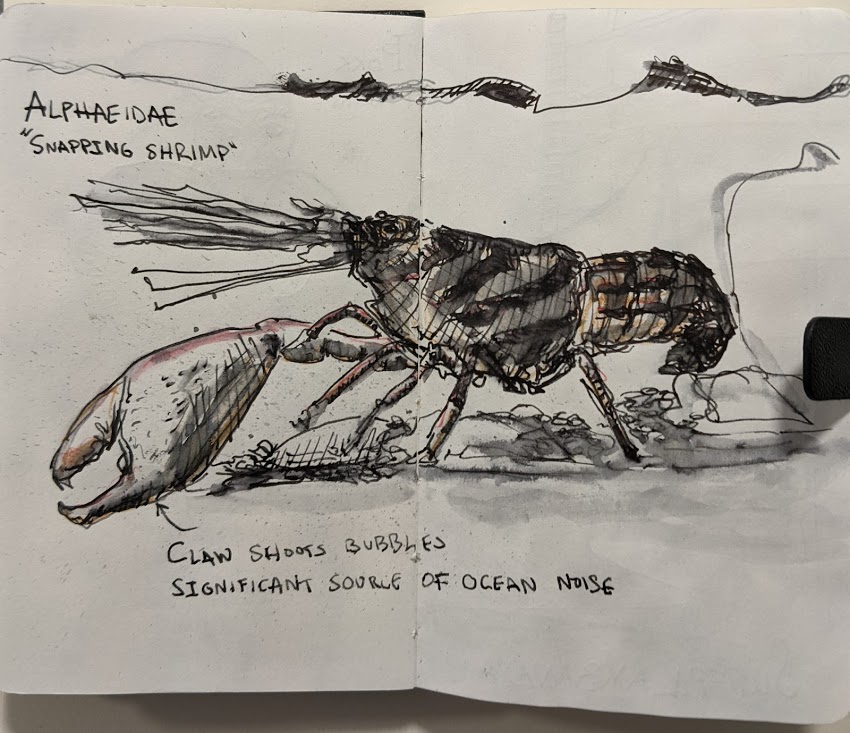 ALPHAEIDAE
"SNAPPING SHRIMP"
CLAW SHOOTS BUBBLES
SIGNIFICANT SOURCE OF OCEAN NOISE